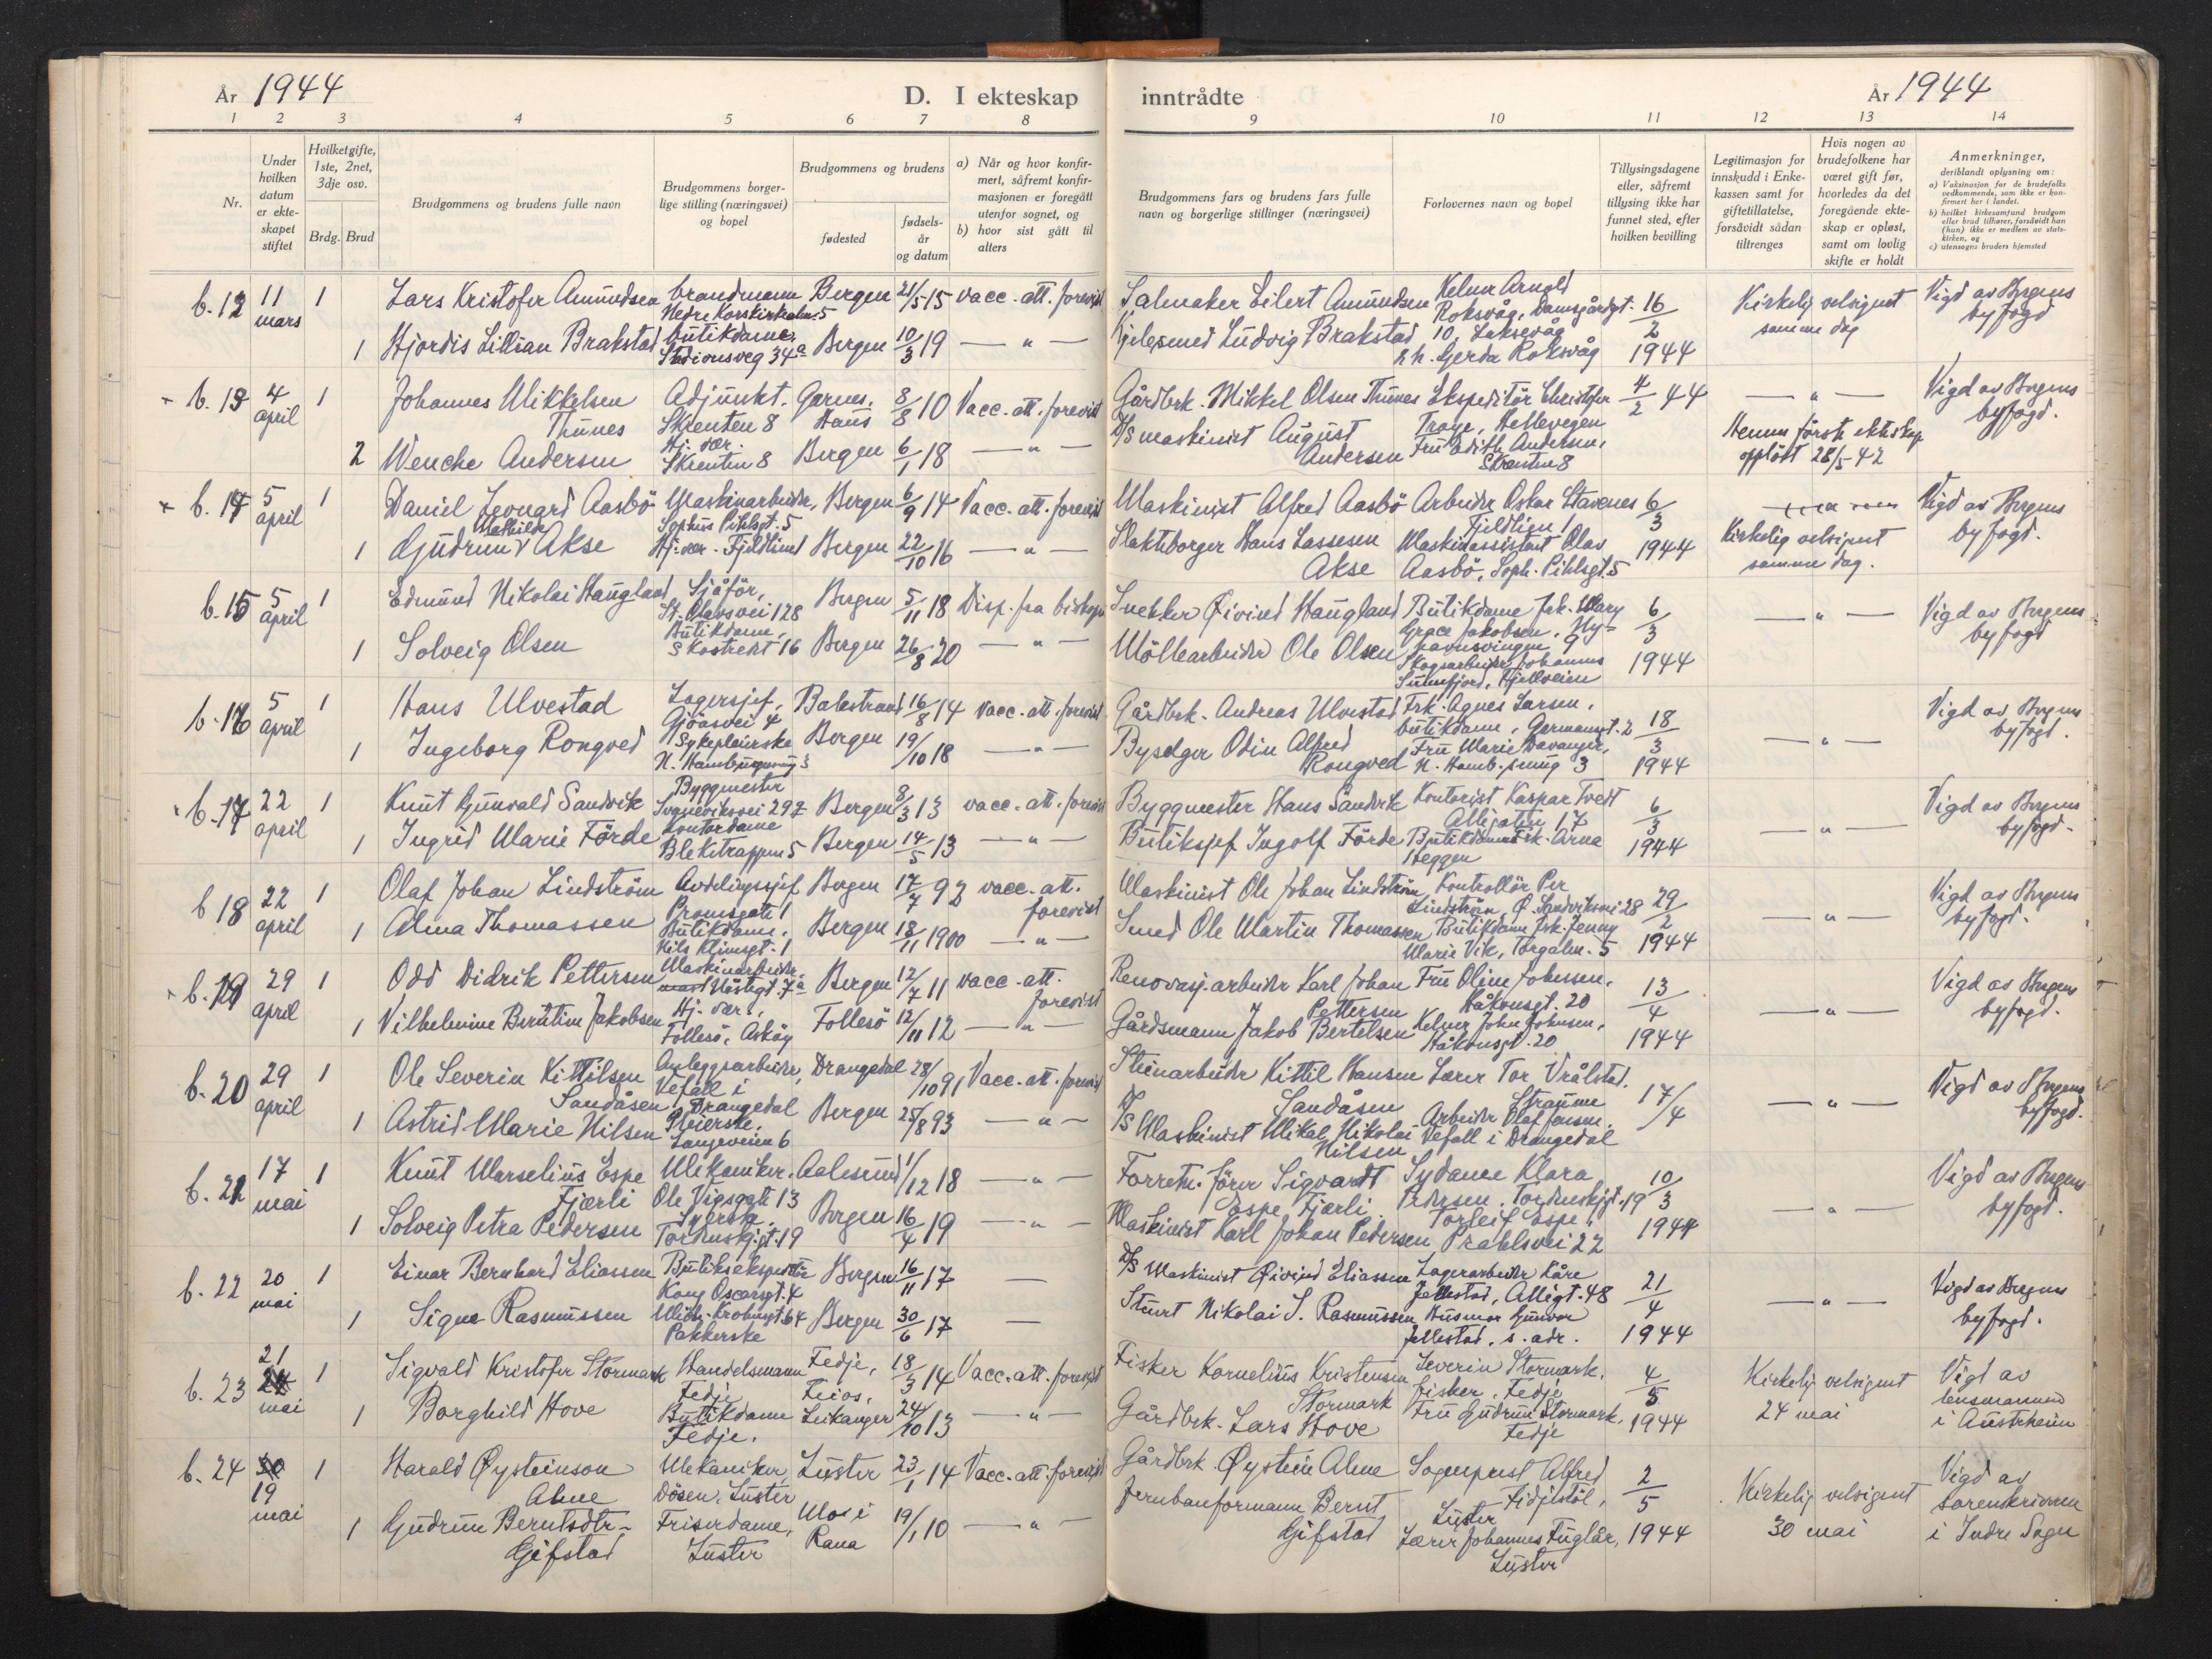 År 1944
D. I ekteskap inntrådte
År 1944
1 2 3 4 5 6 7 8 9 10 11 12 13 14
Nr.
Under hvilken datum er ekteskapet stiftet
Hvilket gifte, 1ste, 2net, 3dje osv.
Brdg. Brud
Brudgommens og brudens fulle navn
Brudgommens borgerlige stilling (næringsvei) og bopel
Brudgommens og brudens
fødested
fødselsår og datum
a) Når og hvor konfirmert, såfremt konfirmasjonen er foregått utenfor sognet, og
b) hvor sist gått til alters
Brudgommens fars og brudens fars fulle navn og borgerlige stillinger (næringsvei)
Forlovernes navn og bopel
Tillysingsdagene eller, såfremt tillysing ikke har funnet sted, efter hvilken bevilling
Legitimasjon for innskudd i Enkekassen samt for giftetillatelse, forsåvidt sådan tiltrenges
Hvis nogen av brudefolkene har været gift før, hvorledes da det foregående ekteskap er opløst, samt om lovlig skifte er holdt
Anmerkninger, deriblandt oplysning om:
a) Vaksinasjon for de brudefolks vedkommende, som ikke er konfirmert her i landet.
b) hvilket kirkesamfund brudgom eller brud tilhører, forsåvidt han (hun) ikke er medlem av statskirken, og
c) utensogns bruders hjemsted
b. 12 11 mars 1 Lars Kristofer Amundsen brandmann Nedre Korskirkealm. 5 Bergen 21/5 15 vacc. att. forevist Salmaker Eilert Amundsen Kelner Arnold Roksvåg, Damsgårdgt. 10, Laksevåg 16/2 1944 Kirkelig velsignet samme dag Vigd av Bergens byfogd
1 Hjordis Lillian Brakstad butikdame, Stadionsveg 34a Bergen 10/3 19 — " — Gjelsmed Ludvig Brakstad Gerda Roksvåg
b. 13 4 april 1 Johannes Mikkelsen Thunes Adjunkt. Skrenten 8 Garnes, Haus 8/8 10 Vacc. att. forevist Gårdbrk. Mikkel Olsen Thunes Ekspeditör Christofer Troye, Hellevegen 4/2 44 — " — Vigd av Bergens byfogd.
2 Wenche Andersen Hj. vær. Skrenten 8 Bergen 6/1 18 — " — D/S maskinist August Andersen Fru Edith Andersen, Skrenten 8 Hennes første ekteskap oppløst 28/5 42
b. 14 5 april 1 Daniel Leonard Aasbö Maskinarbeider, Sophus Pihlsgt. 5 Bergen 6/9 14 Vacc. att. forevist Maskinist Alfred Aasbö Arbeider Oskar Stavenes Fjeldlien 1 6/3 1944 Kirkelig velsignet samme dag. Vigd av Bergens byfogd.
1 Gudrun Mathilde Akse Hj. vær. Fjeldlien 1 Bergen 22/10 16 — " — Slakteborger Hans Lassesen Akse Maskinassistent Olav Aasbö, Soph. Pihlsgt. 5
b. 15 5 april 1 Edmund Nikolai Haugland Sjåför, St. Olavsvei 128 Bergen 5/11 18 Disp. fra biskopen Snekker Øivind Haugland Butikdame frk. Mary Grace Jakobsen, Nyhavnsvingen 9 6/3 1944 — " — Vigd av Bergens byfogd
1 Solveig Olsen Butikdame, Skostredet 16 Bergen 26/8 20 — " — Möllearbeider Ole Olsen Skogsarbeider Johannes Sunnfjord, Fjellveien
b. 16 5 april 1 Hans Ulvestad Lagersjef, Gjöasvei 4 Balestrand 16/8 14 vacc. att. forevist Gårdbrk. Andreas Ulvestad Frk. Agnes Larsen, butikdame, Gormsgt. 2 18/3 1944 — " — Vigd av Bergens byfogd.
1 Ingeborg Rongved Sykepleierske Bergen 19/10 18 — " — Byselger Odin Alfred Rongved Fru Marie Davanger, N. Hamb. smug 3
b. 17 22 april 1 Knut Gunvald Sandvik Byggmester Bergen 8/3 13 vacc. att. forevist Byggmester Hans Sandvik Kontorist Kaspar Tvedt Allégaten 17 6/3 1944 — " — Vigd av Bergens byfogd.
1 Ingrid Marie Förde kontordame Blekitrappen 5 Bergen 14/5 13 — " — Butiksjef Ingolf Förde Butikdame frk. Arna Heggen
b 18 22 april 1 Olaf Johan Lindström Avdelingssjef Promsgate 1 Bergen 17/7 92 vacc. att. forevist Maskinist Ole Johan Lindström Kontrollör Per Lindström, Ø. Sandviksvei 28 29/2 1944 — " — Vigd av Bergens byfogd.
1 Alma Thomassen Butikdame, Nils Klimsgt. 1 Bergen 18/11 1900 — " — Smed Ole Martin Thomassen Butikdame frk. Jenny Marie Vik, Torgalm. 5
b. 19 29 april 1 Odd Didrik Pettersen Maskinarbeider Nöstegt. 7a Bergen 12/7 11 vacc. att. forevist Renovasj. arbeider Karl Johan Pettersen Fru Oline Johnsen, Håkonsgt. 20 13/4 1944 — " — Vigd av Bergens byfogd.
1 Vilhelmine Bertine Jakobsen Hj. vær., Follesö, Asköy Follesö 12/11 12 — " — Gårdsmann Jakob Bertelsen Kelner John Johnsen, Håkonsgt. 20
b. 20 29 april 1 Ole Severin Kittilsen Sandåsen Anleggsarbeider, Vefall i Drangedal Drangedal 28/10 91 Vacc. att. forevist Steinarbeider Kittil Hansen Sandåsen Lærer Tor Vrålstad. Straume 17/4 — " — Vigd av Bergens byfogd.
1 Astrid Marie Nilsen Pleierske. Langeveien 6 Bergen 25/8 93 — " — D/S Maskinist Mikal Nikolai Nilsen Arbeider Olaf Jensen. Vefall i Drangedal
b. 21 17 mai 1 Knut Marselius Espe Fjærli Mekaniker. Ole Vigsgate 13 Aalesund 1/12 18 — " — Forretn. förer Sigvardt Espe Fjærli Sydame Klara Pedersen. Tordenskjgt. 19 10/3 1944 — " — Vigd av Bergens byfogd.
1 Solveig Petra Pedersen Syerske. Tordenskjgt. 19 Bergen 16/4 19 — " — Maskinist Karl Johan Pedersen Torleif Espe, Prahlsvei 22
b. 22 20 mai 1 Einar Bernhard Eliassen Butiksekspeditör Kong Oscarsgt. 4 Bergen 16/11 17 — D/S Maskinist Øivind Eliassen Lagerarbeider Kåre Jellestad, Allégt. 48 21/4 1944 — " — Vigd av Bergens byfogd.
1 Signe Rasmussen Mich. Krohnsgt. 64 Pakkerske Bergen 30/6 17 — Stuert Nikolai S. Rasmussen Husmor Gunvor Jellestad, s. adr.
b. 23 21 mai 1 Sigvald Kristofer Stormark Handelsmann Fedje Fedje, 18/3 14 Vacc. att. forevist Fisker Kornelius Kristensen Stormark Severin Stormark, fisker, Fedje 4/5 1944 Kirkelig velsignet 24 mai Vigd av lensmannen i Austrheim
1 Borghild Hove Butikdame Fedje. Feios, Leikanger 24/10 13 — " — Gårdbrk. Lars Hove Fru Gudrun Stormark, Fedje
b. 24 19 mai 1 Harald Øysteinson Alme Mekaniker, Dösen, Luster Luster 23/1 14 Vacc. att. forevist Gårdbrk. Øystein Alme Sogneprest Alfred Fidjestöl, Luster 2/5 1944 Kirkelig velsignet 30 mai Vigd av sorenskriveren i Indre Sogn
1 Gudrun Berntsdtr. Gifstad Friserdame, Luster Mo i Rana 19/1 10 — " — Jernbaneformann Bernt Gifstad Lærer Johannes Fuglår, Luster